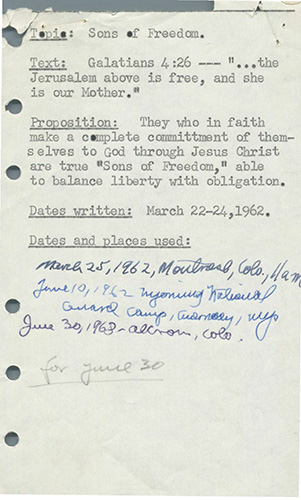 Topic: Sons of Freedom.
Text: Galatians 4:26 --- "...the
Jerusalem above is free, and she
is our Mother."
Proposition: They who in faith
make a complete committment of them-
selves to God through Jesus Christ
are true "Sons of Freedom," able
to balance liberty with obligation.
Dates written: March 22-24,1962.
Dates and places used:
March 25, 1962, Montrose, Colo.,
June 10, 1962 Wyoming National
Guard Camp, Guernsey, Wyo
June 30, 1968 - Akron, Colo.
for June 30